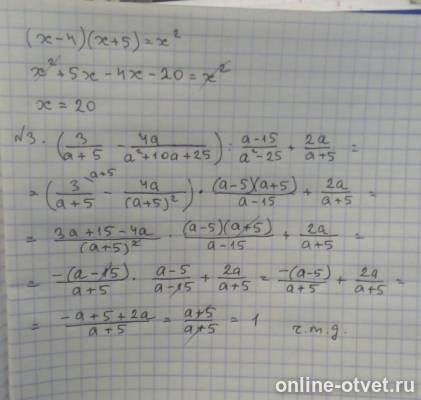 (x-4)(x+5)=x²
x²+5x-4x-20=x²
x=20
№3. (3/(a+5) - 4a/(a²+10a+25)) : (a-15)/(a²-25) + 2a/(a+5) =
= (3/(a+5) \a+5 - 4a/(a+5)²) · (a-5)(a+5)/(a-15) + 2a/(a+5) =
= (3a+15-4a)/(a+5)² · (a-5)(a+5)/(a-15) + 2a/(a+5) =
= -(a-15)/(a+5) · (a-5)/(a-15) + 2a/(a+5) = -(a-5)/(a+5) + 2a/(a+5) =
= (-a+5+2a)/(a+5) = (a+5)/(a+5) = 1 ч.т.д.
online-otvet.ru